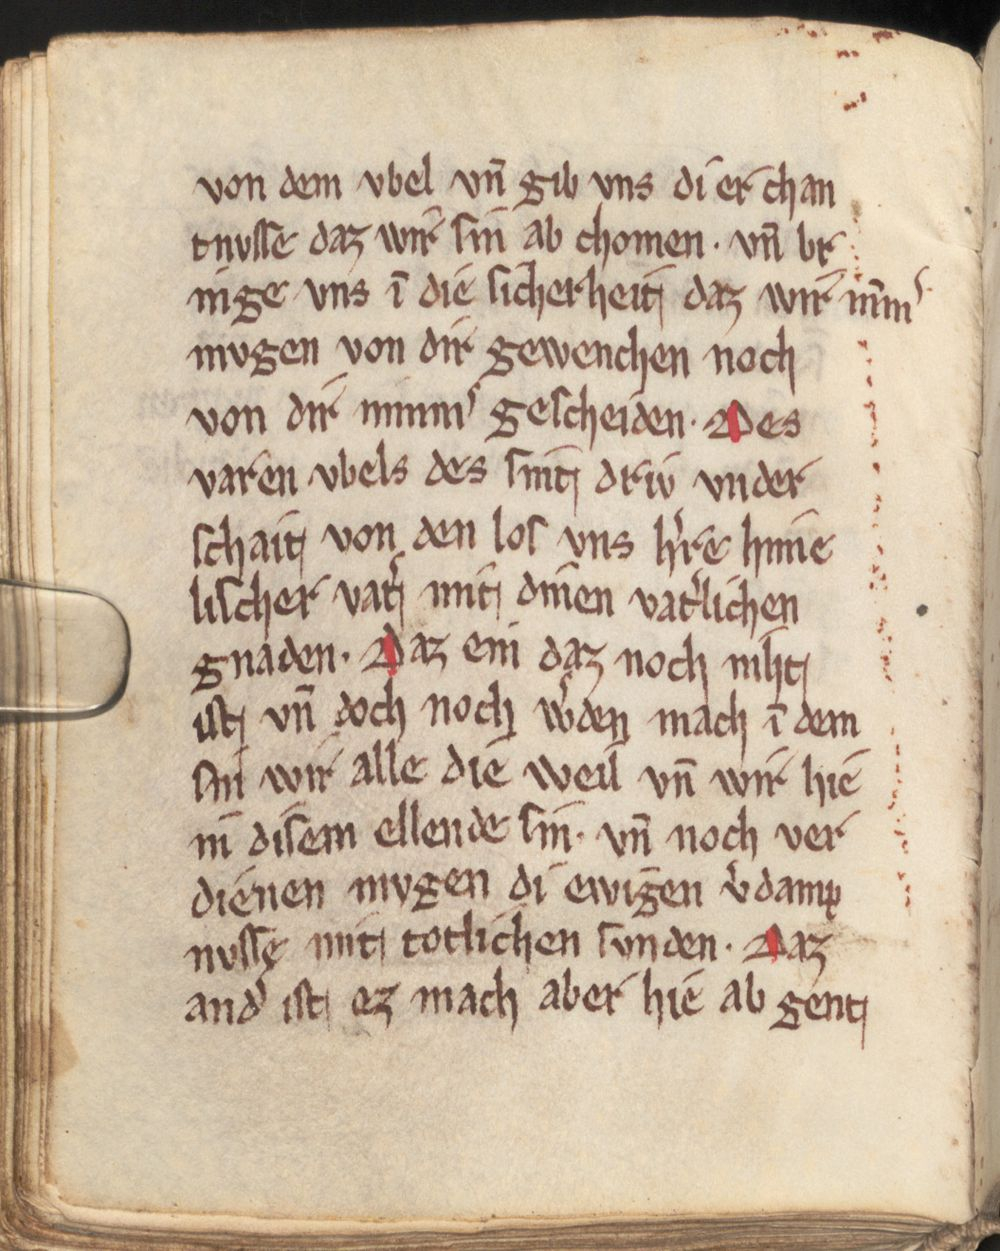 von dem vbel vn̄ gib vns di er chan
tnvſſe daz wir ſin ab chomen · vn̄ br
inge vns ī die ſicherheit daz wir nīm͛
mvgen von dir gewenchen noch
von dir nimm͛ geſcheiden · Des
varen vbels des ſint driv vnder
ſchait von den los vns h͛re hime
liſcher vat͛ mit dinen vat͛lichen
gnaden · Daz ein daz noch niht
iſt vn̄ doch noch w͛den mach ī dem
ſin wir alle die weil vn̄ wir hie
in diſem ellende ſin · vn̄ noch ver
dienen mvgen di ewigen v͛damp
nvſſe mit totlichen ſvnden · Daz
and͛ iſt ez mach aber hie ab gent